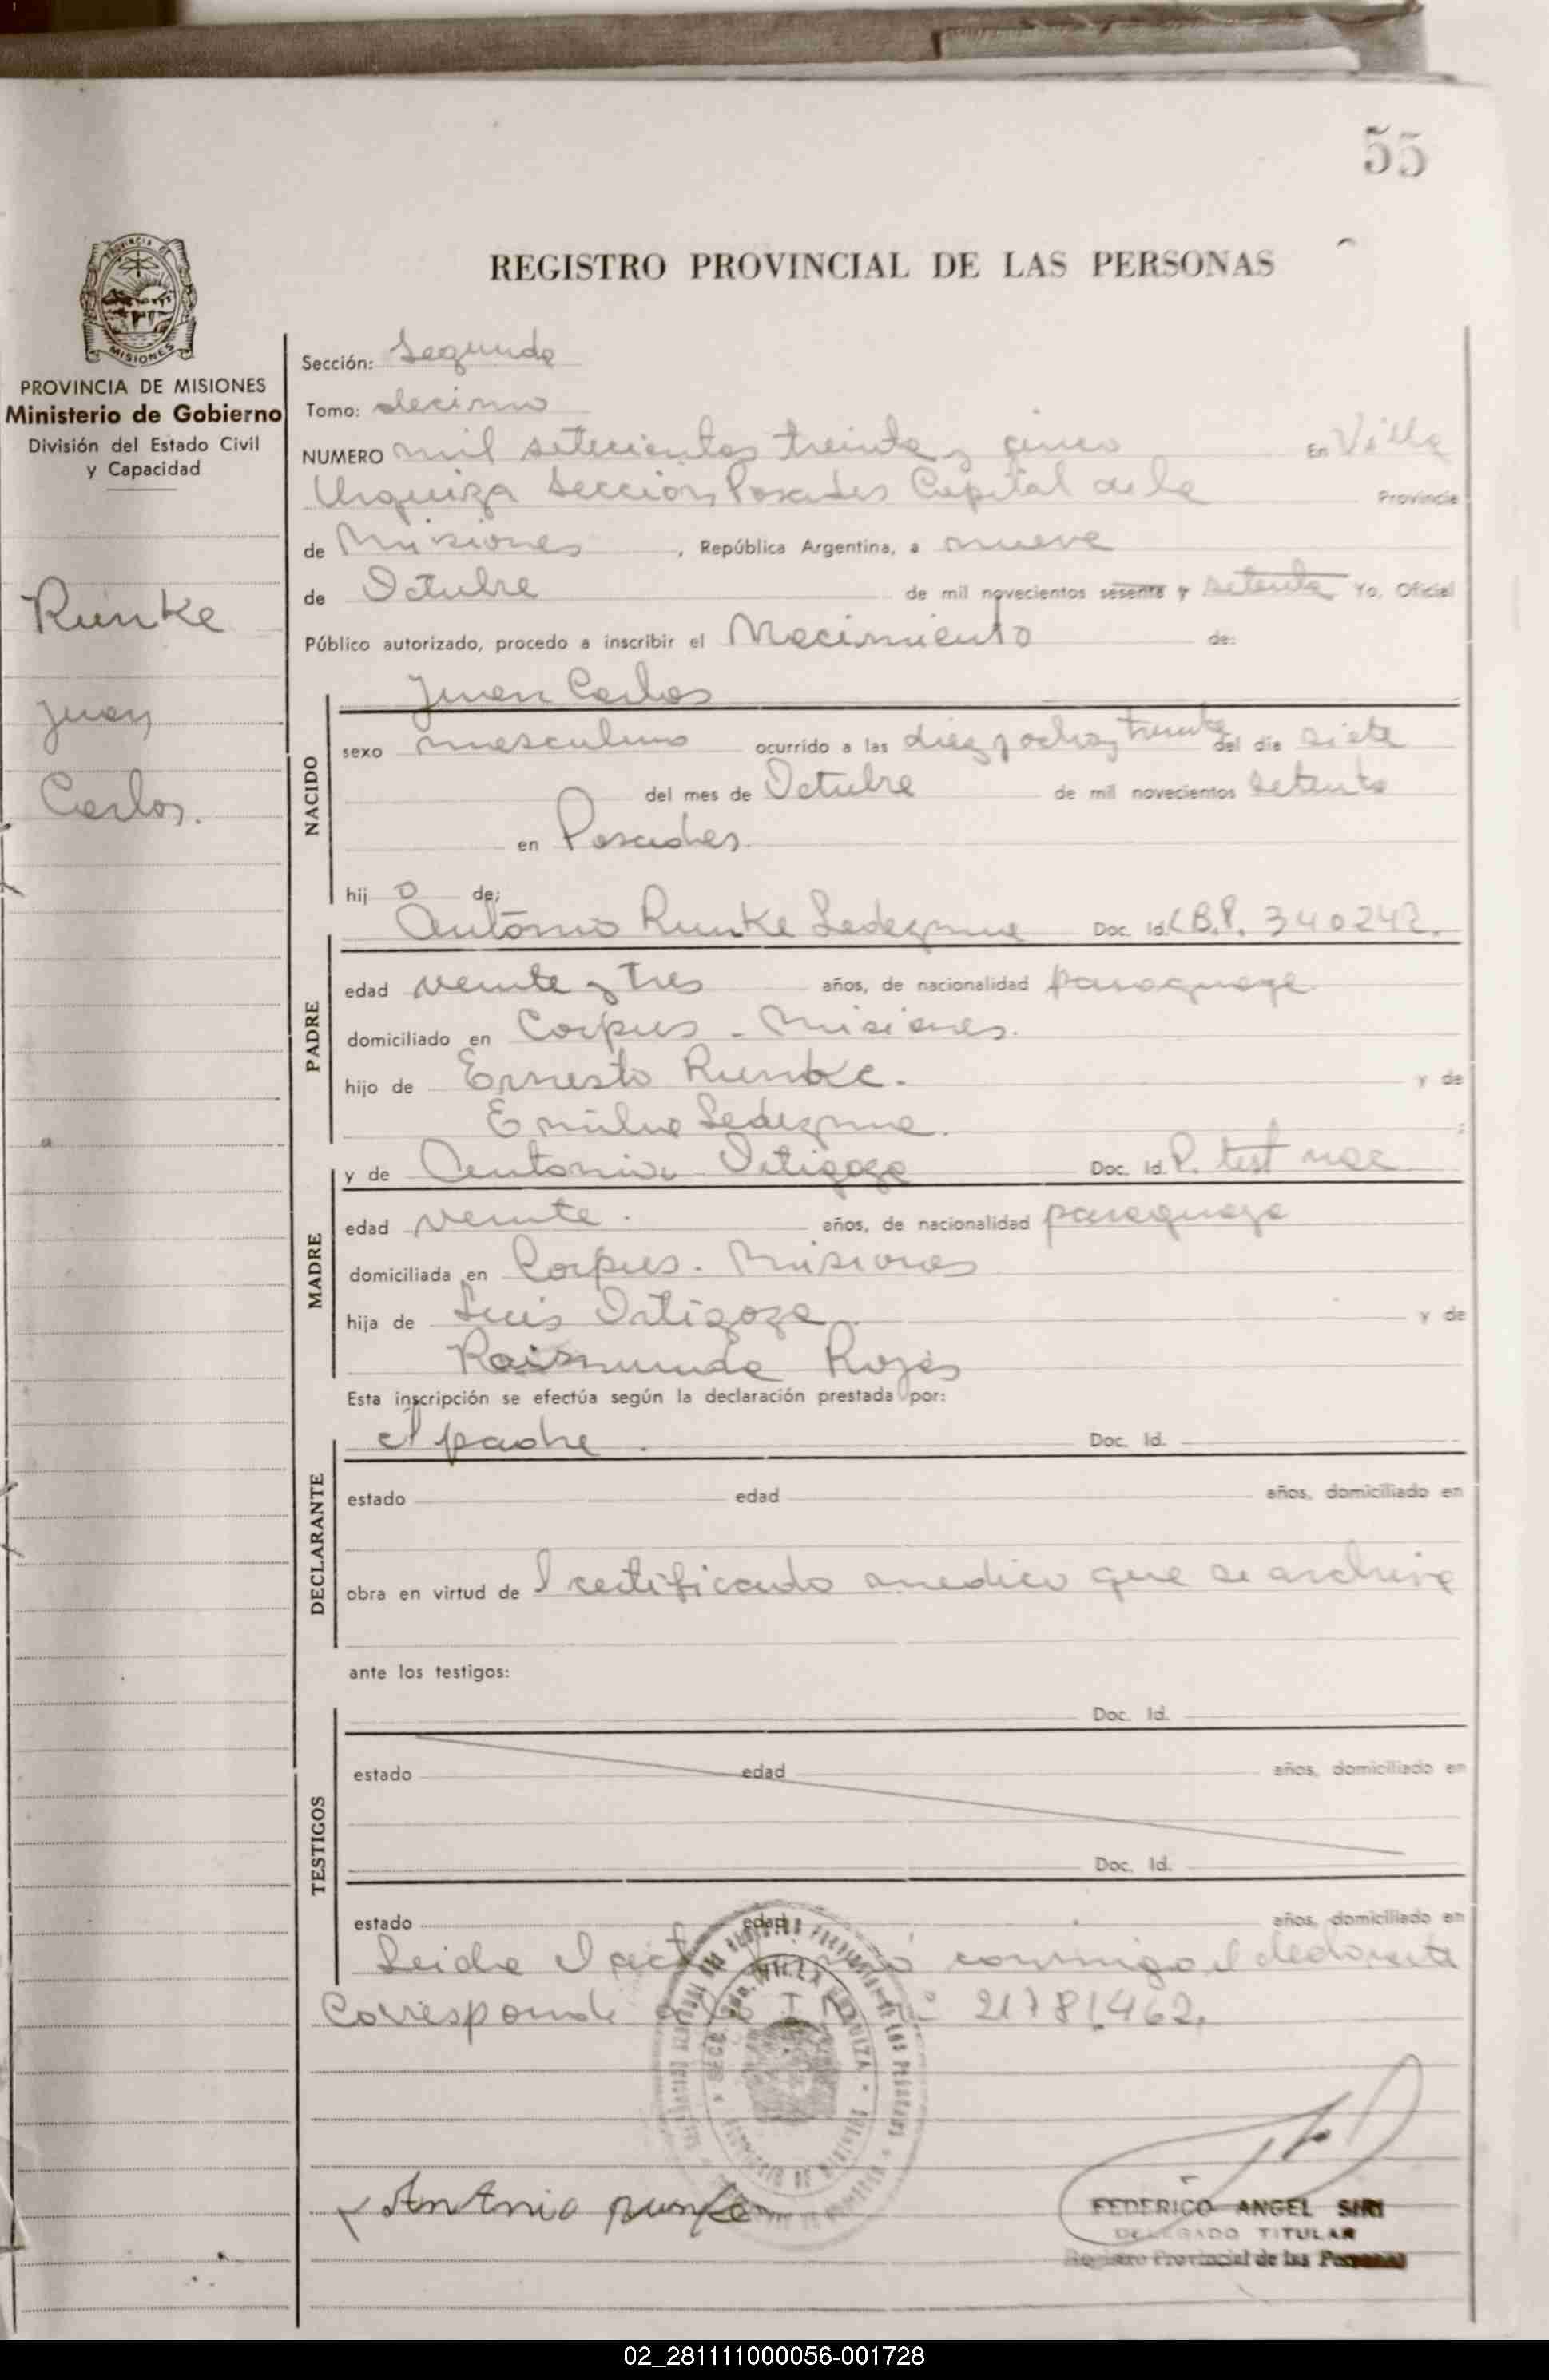 55
PROVINCIA DE
MISIONES
PROVINCIA DE MISIONES
Ministerio de Gobierno
División del Estado Civil
y Capacidad
Runke
Juan
Carlos.
REGISTRO PROVINCIAL DE LAS PERSONAS
Sección: Segunda
Tomo: decimo
NUMERO mil setecientos treinta y cinco En Villa
Urquiza Seccion Posadas Capital de la Provincia
de Misiones , República Argentina, a nueve
de Octubre de mil novecientos sesenta y setenta Yo, Oficial
Público autorizado, procedo a inscribir el Nacimiento de:
NACIDO
Juan Carlos
sexo masculino ocurrido a las diez y ocho y treinta del día siete
del mes de Octubre de mil novecientos setenta
en Posadas.
hij o de:
PADRE
Antonio Runke Ledezma Doc. Id. C.B.P. 340242.
edad veinte y tres años, de nacionalidad paraguaya.
domiciliado en Corpus - Misiones.
hijo de Ernesto Runke. y de
Emilia Ledezma. ;
MADRE
y de Antonia Ortigoza Doc. Id. P. test nac
edad veinte. años, de nacionalidad paraguaya
domiciliada en Corpus. Misiones
hija de Luis Ortigoza y de
Raimunda Rojas
Esta inscripción se efectúa según la declaración prestada por:
DECLARANTE
el padre. Doc. Id.
estado edad años, domiciliado en
obra en virtud de l certificado medico que se archiva
ante los testigos:
TESTIGOS
Doc. Id.
estado edad años, domiciliado en
Doc. Id.
estado edad años, domiciliado en
Leida el acta firmó conmigo el declarante
Corresponde 21781.462.
VILLA URQUIZA
Antonio Runke
FEDERICO ANGEL SIRI
DELEGADO TITULAR
Registro Provincial de las Personas
02_281111000056-001728